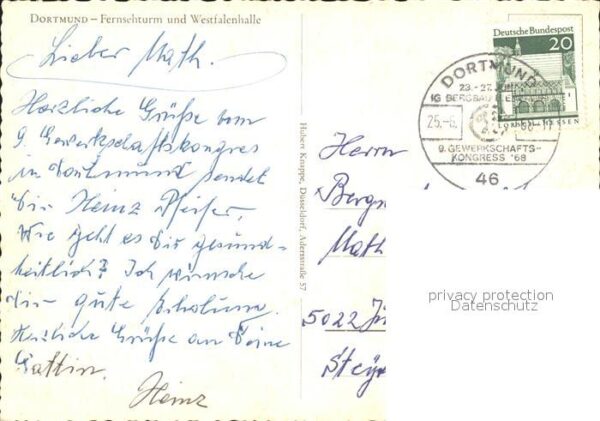 DORTMUND – Fernsehturm und Westfalenhalle
Lieber Math.
Herzliche Grüße vom
9. Gewerkschaftskongres
in Dortmund sendet
Dir Heinz Pfeifer,
Wie geht es Dir gesund-
heitlich? Ich wünsche
Dir gute Erholung.
Herzliche Grüße an Deine
Gattin.
Heinz
Hubert Knappe, Düsseldorf, Adersstraße 57
Deutsche Bundespost
20
DORTMUND
23.-27.
IG BERGBAU
25.-6.
9. GEWERKSCHAFTS-
KONGRESS '68
46
Herrn
Math
5022
privacy protection
Datenschutz